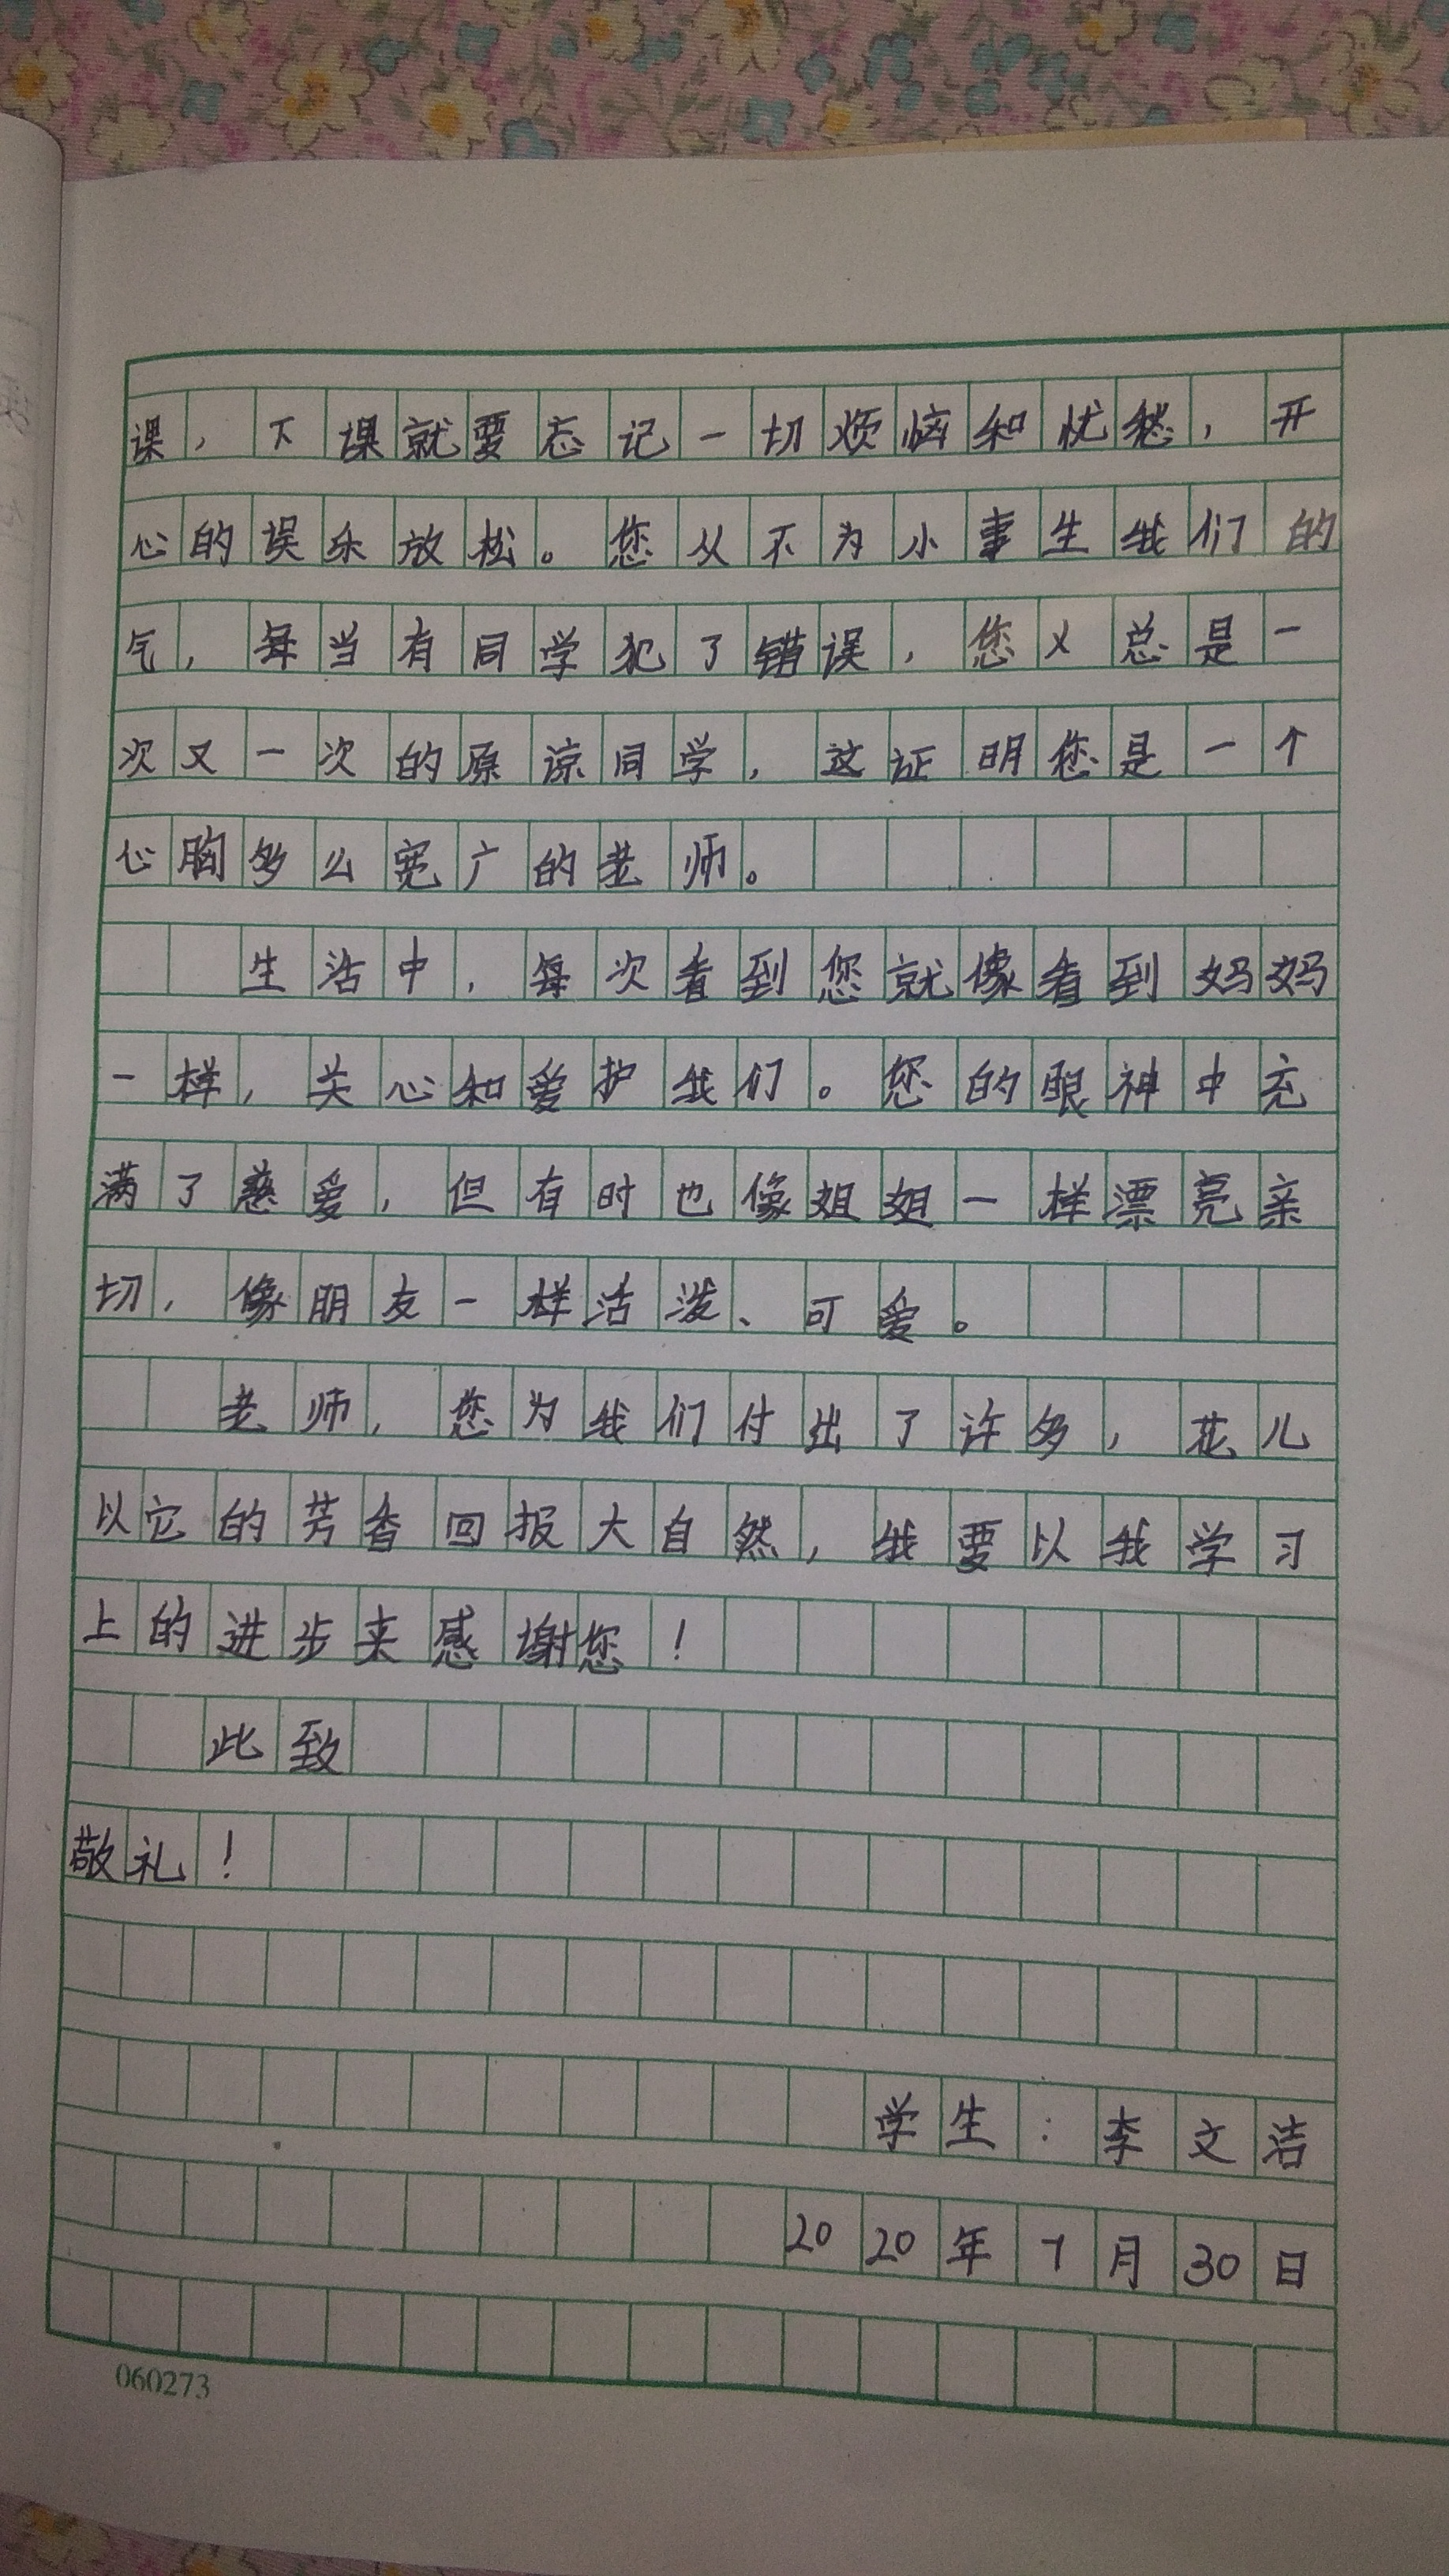 课，下课就要忘记一切烦恼和忧愁，开
心的误乐放松。您从不为小事生我们的
气，每当有同学犯了错误，您又总是一
次又一次的原谅同学，这证明您是一个
心胸多么宽广的老师。
生活中，每次看到您就像看到妈妈
一样，关心和爱护我们。您的眼神中充
满了慈爱，但有时也像姐姐一样漂亮亲
切，像朋友一样活泼、可爱。
老师，您为我们付出了许多，花儿
以它的芳香回报大自然，我要以我学习
上的进步来感谢您！
此致
敬礼！
学生：李文洁
2020年7月30日
060273